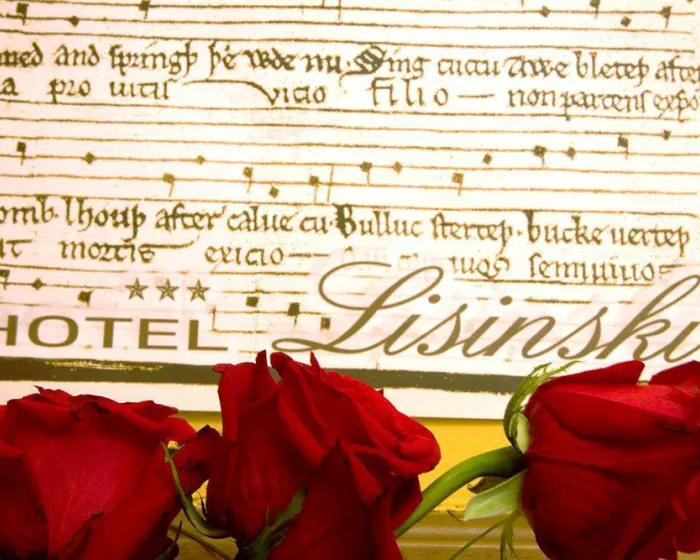 and springþ þe wde nu. Sing cuccu Awe bleteþ
a pro vitis vicio filio non parcens
omb. lhouþ after calve cu. Bulluc sterteþ. bucke verteþ
mortis exicio
semivivos
★★★
HOTEL Lisinski